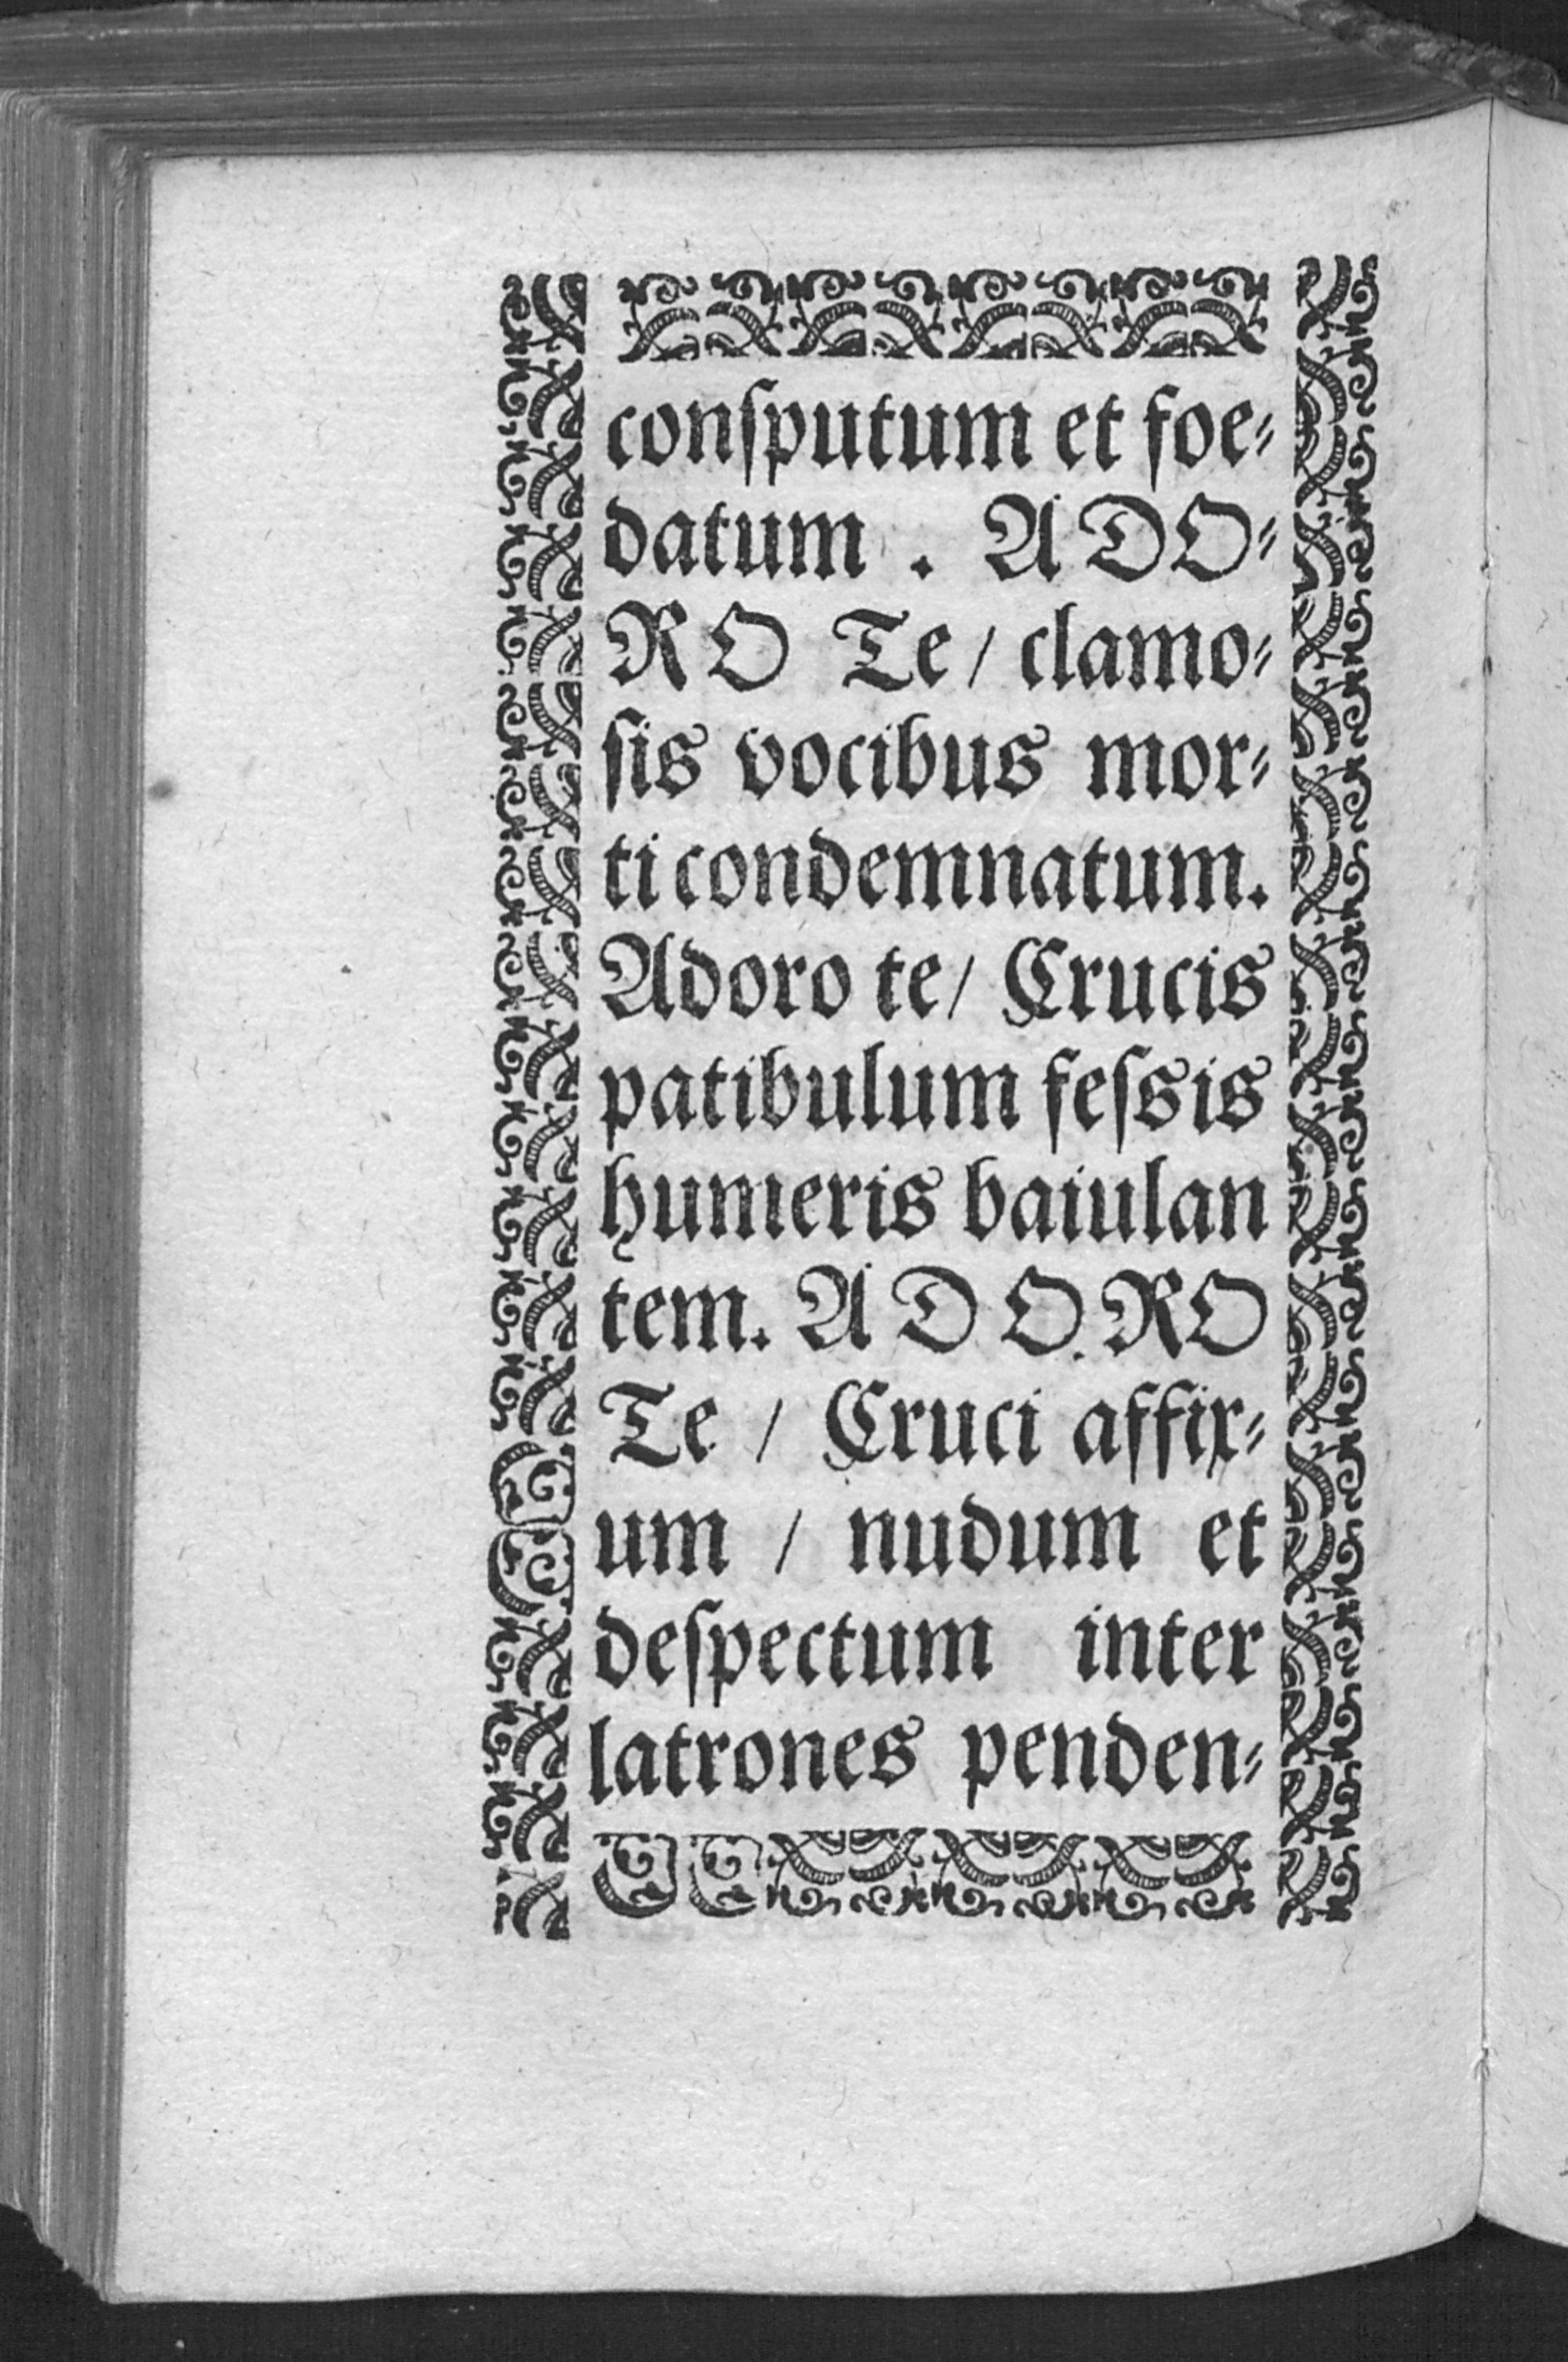 conſputum et foe⸗
datum . ADO⸗
RO Te / clamo⸗
ſis vocibus mor⸗
ti condemnatum.
Adoro te / Crucis
patibulum feſsis
humeris baiulan
tem. ADO.RO
Te / Cruci affix⸗
um / nudum et
deſpectum inter
latrones penden⸗